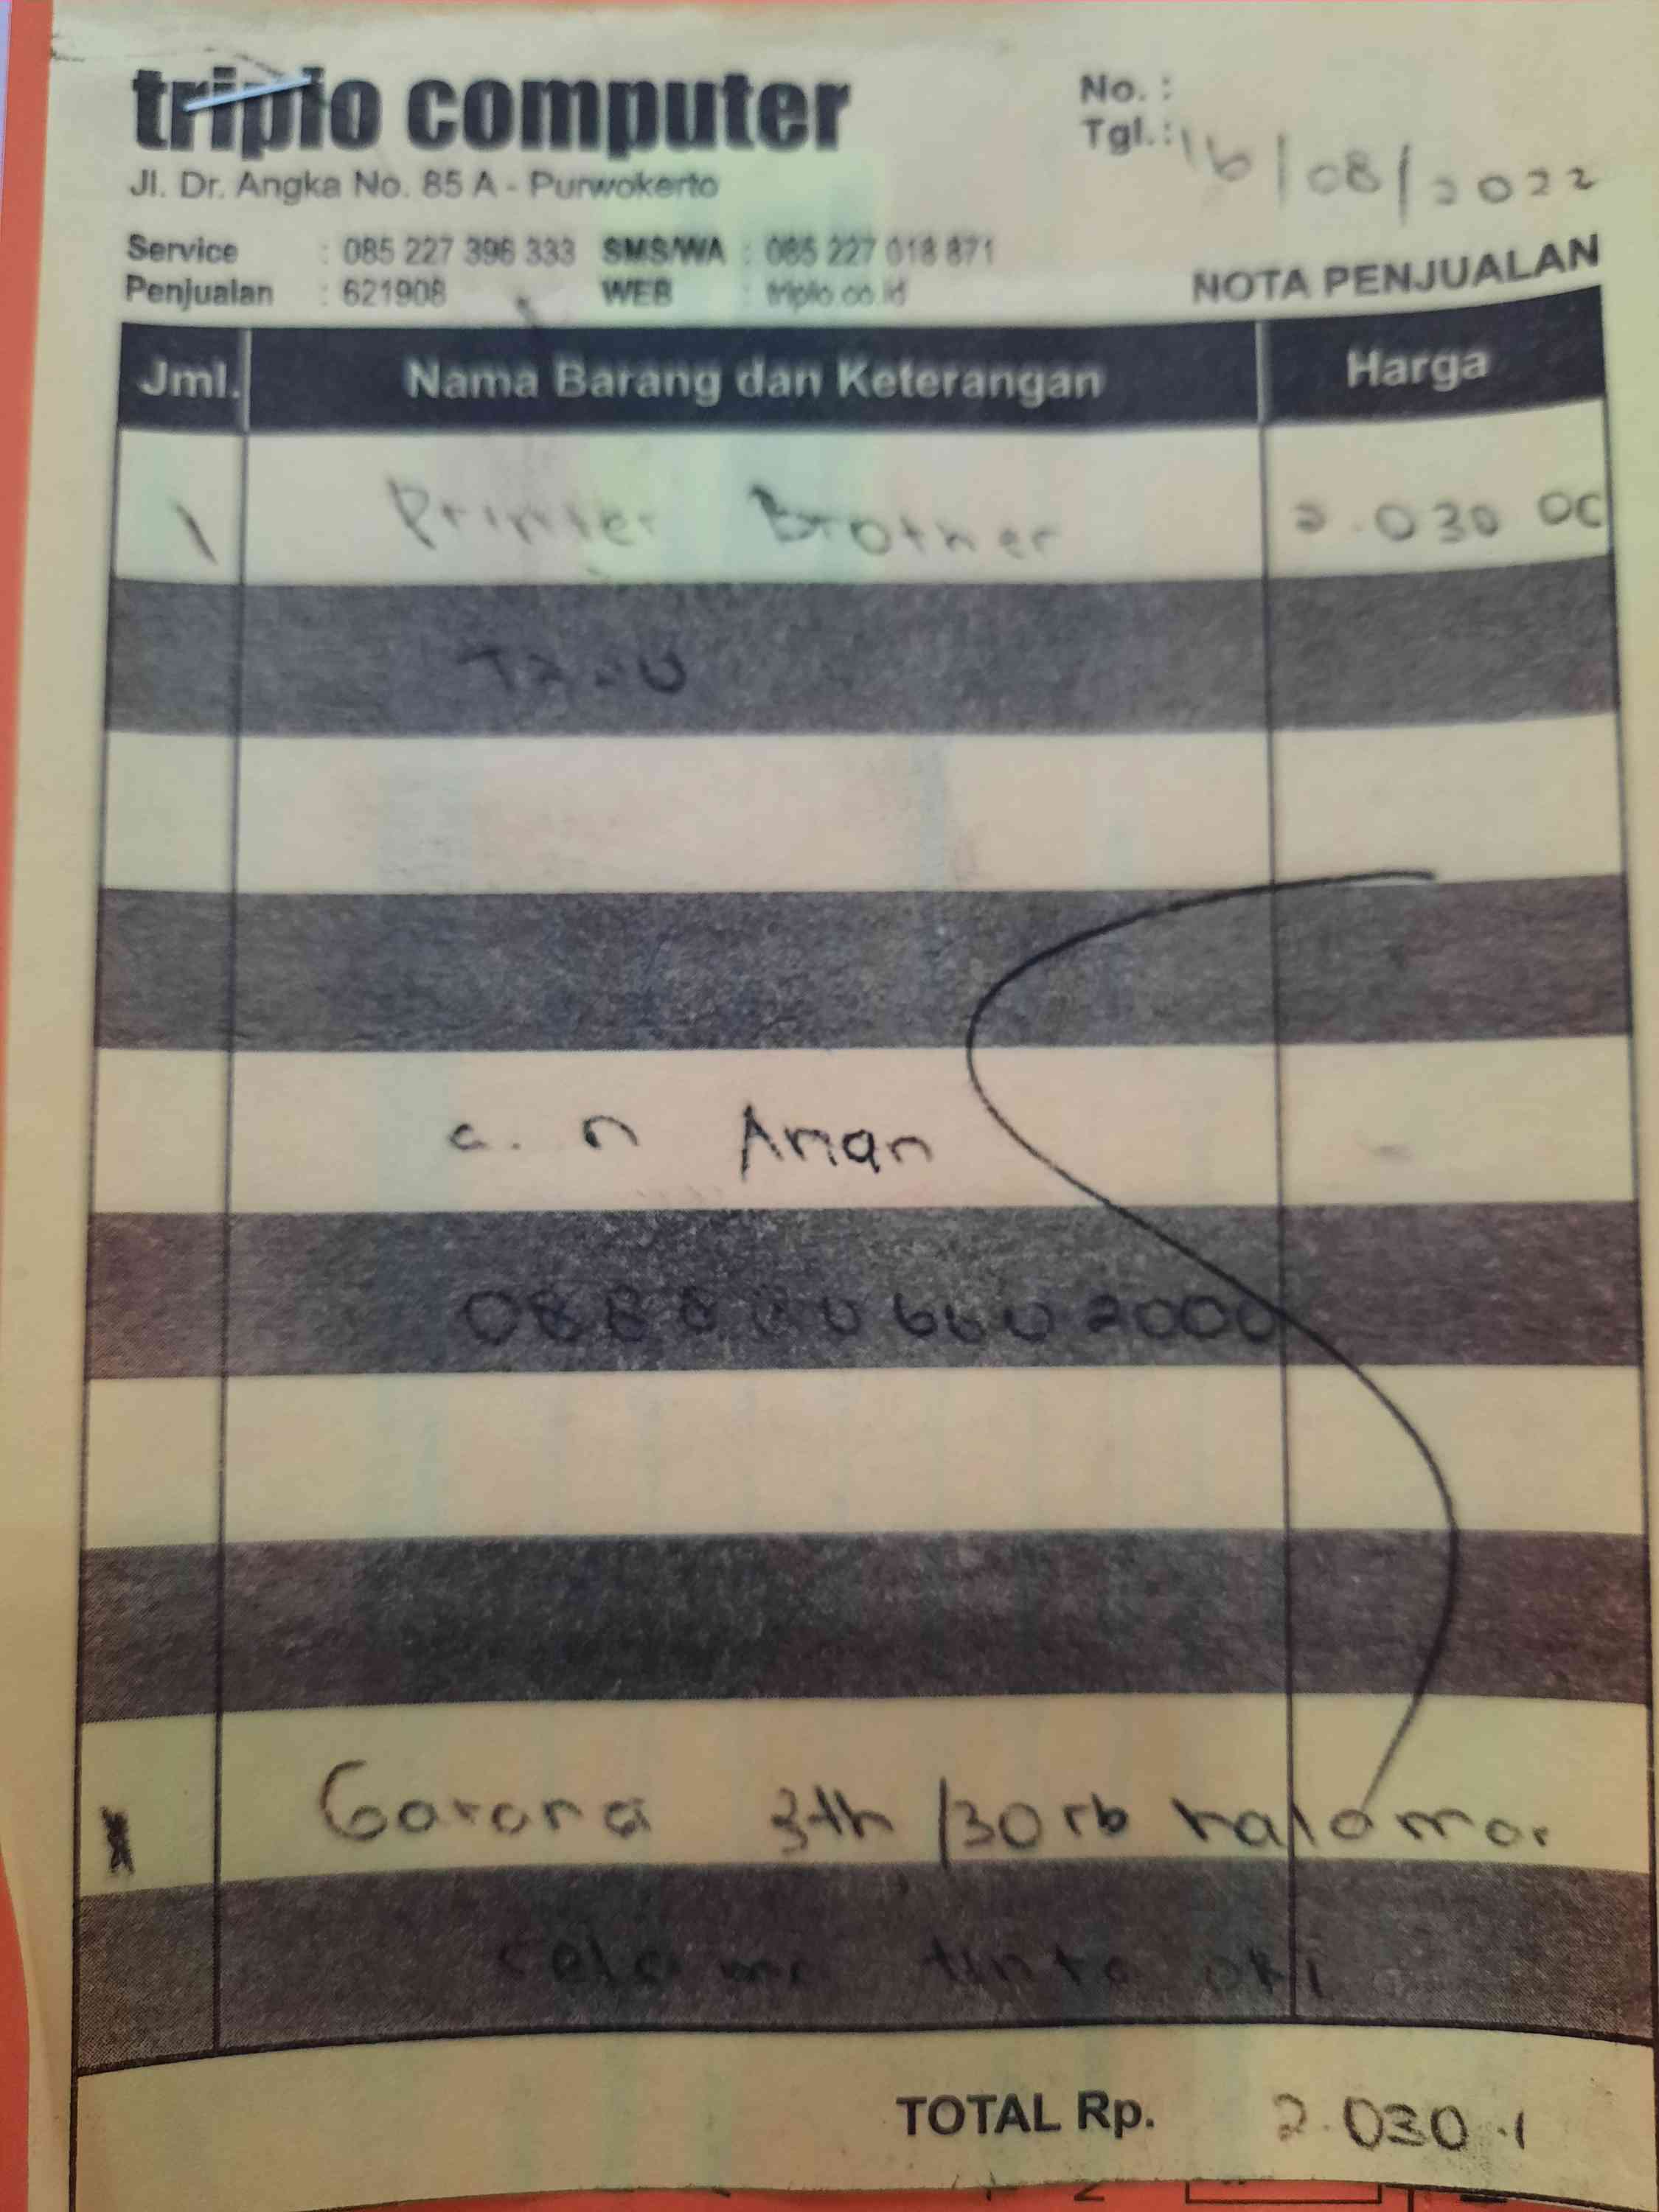 triplo computer
Jl. Dr. Angka No. 85 A - Purwokerto
No. :
Tgl.: 16/08/2022
Service : 085 227 396 333 SMS/WA : 085 227 018 871
Penjualan : 621908 WEB : triplo.co.id
NOTA PENJUALAN
Jml. Nama Barang dan Keterangan Harga
1 Printer Brother 2.030 00
a.n
Garansi 3th /30 rb halaman
tinta ori
TOTAL Rp. 2.030